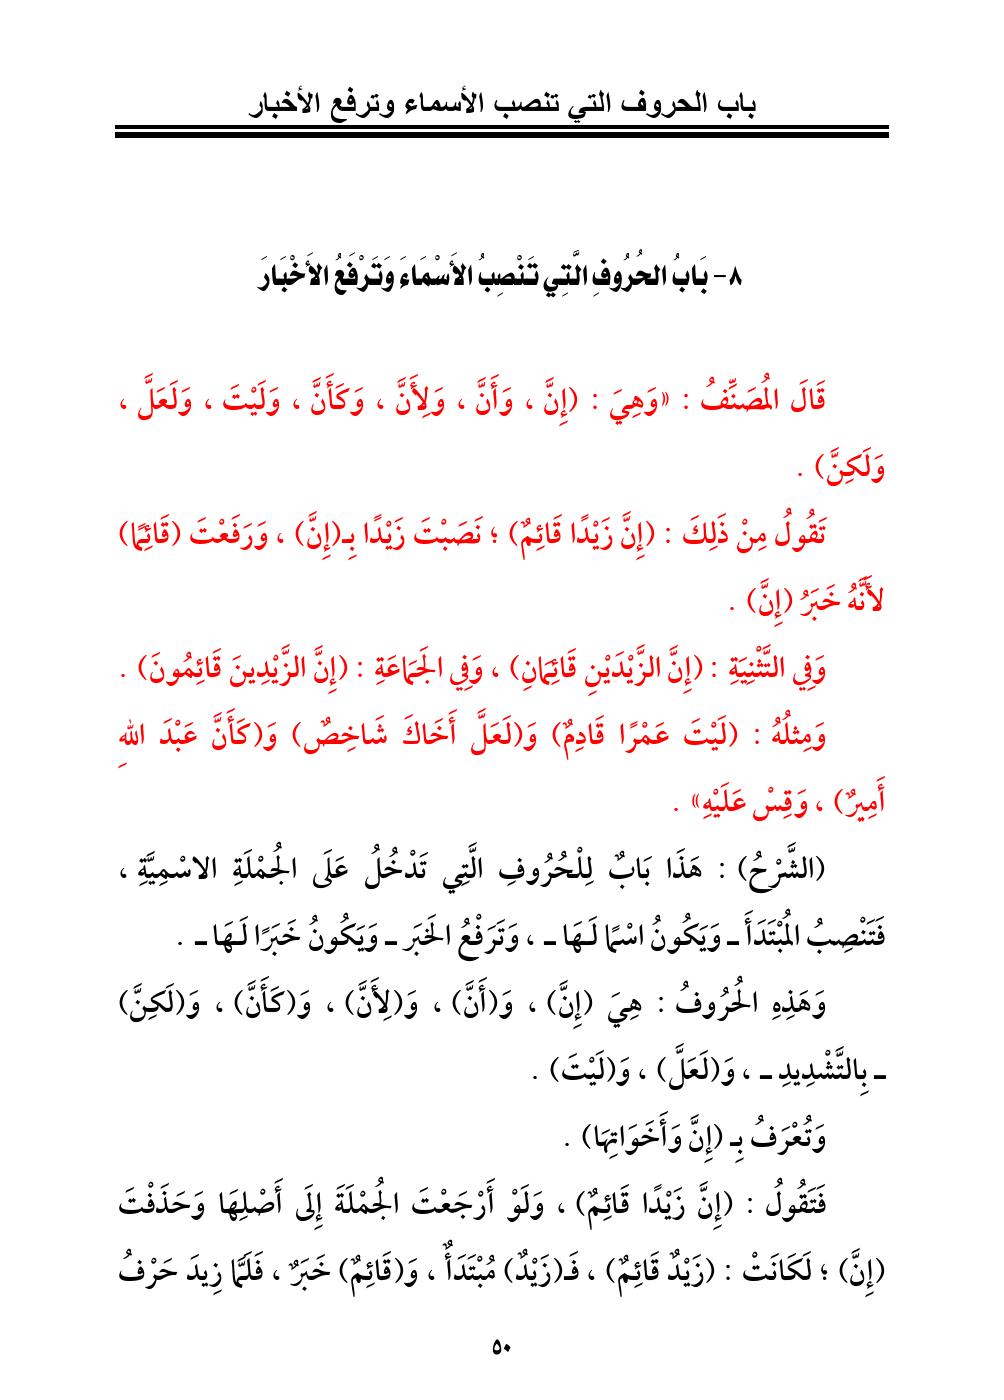 باب الحروف التي تنصب الأسماء وترفع الأخبار
٨- بَابُ الحُرُوفِ الَّتِي تَنْصِبُ الأَسْمَاءَ وَتَرْفَعُ الأَخْبَارَ
قَالَ المُصَنِّفُ : «وَهِيَ : (إِنَّ ، وَأَنَّ ، وَلِأَنَّ ، وَكَأَنَّ ، وَلَيْتَ ، وَلَعَلَّ ،
وَلَكِنَّ) .
تَقُولُ مِنْ ذَلِكَ : (إِنَّ زَيْدًا قَائِمٌ) ؛ نَصَبْتَ زَيْدًا بِـ(إِنَّ) ، وَرَفَعْتَ (قَائِمًا)
لأَنَّهُ خَبَرُ (إِنَّ) .
وَفِي التَّثْنِيَةِ : (إِنَّ الزَّيْدَيْنِ قَائِمَانِ) ، وَفِي الجَمَاعَةِ : (إِنَّ الزَّيْدِينَ قَائِمُونَ) .
وَمِثلُهُ : (لَيْتَ عَمْرًا قَادِمٌ) وَ(لَعَلَّ أَخَاكَ شَاخِصٌ) وَ(كَأَنَّ عَبْدَ اللهِ
أَمِيرٌ) ، وَقِسْ عَلَيْهِ» .
(الشَّرْحُ) : هَذَا بَابٌ لِلْحُرُوفِ الَّتِي تَدْخُلُ عَلَى الجُمْلَةِ الاسْمِيَّةِ ،
فَتَنْصِبُ المُبْتَدَأَ ـ وَيَكُونُ اسْمًا لَـهَا ـ ، وَتَرَفْعُ الخَبَر ـ وَيَكُونُ خَبَرًا لَـهَا ـ .
وَهَذِهِ الحُرُوفُ : هِيَ (إِنَّ) ، وَ(أَنَّ) ، وَ(لِأَنَّ) ، وَ(كَأَنَّ) ، وَ(لَكِنَّ)
ـ بِالتَّشْدِيدِ ـ ، وَ(لَعَلَّ) ، وَ(لَيْتَ) .
وَتُعْرَفُ بِـ (إِنَّ وَأَخَوَاتِهَا) .
فَتَقُولُ : (إِنَّ زَيْدًا قَائِمٌ) ، وَلَوْ أَرْجَعْتَ الجُمْلَةَ إِلَى أَصْلِهَا وَحَذَفْتَ
(إِنَّ) ؛ لَكَانَتْ : (زَيْدٌ قَائِمٌ) ، فَـ(زَيْدٌ) مُبْتَدَأٌ ، وَ(قَائِمٌ) خَبَرٌ ، فَلَمَّا زِيدَ حَرْفُ
٥٠